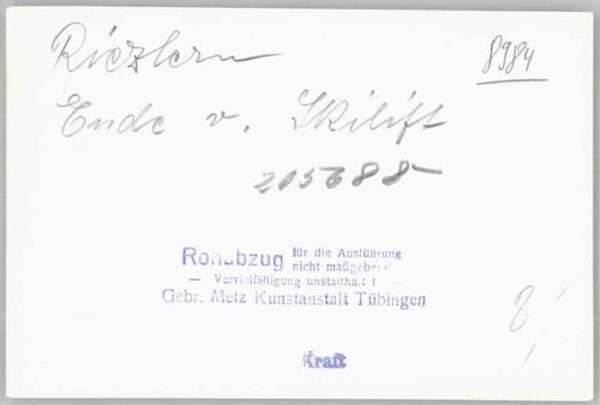 Riezlern
8984
Ende v. Skilift
Rohabzug für die Ausführung
nicht maßgebend
— Vervielfältigung unstatthaft! —
Gebr. Metz Kunstanstalt Tübingen
Kraft